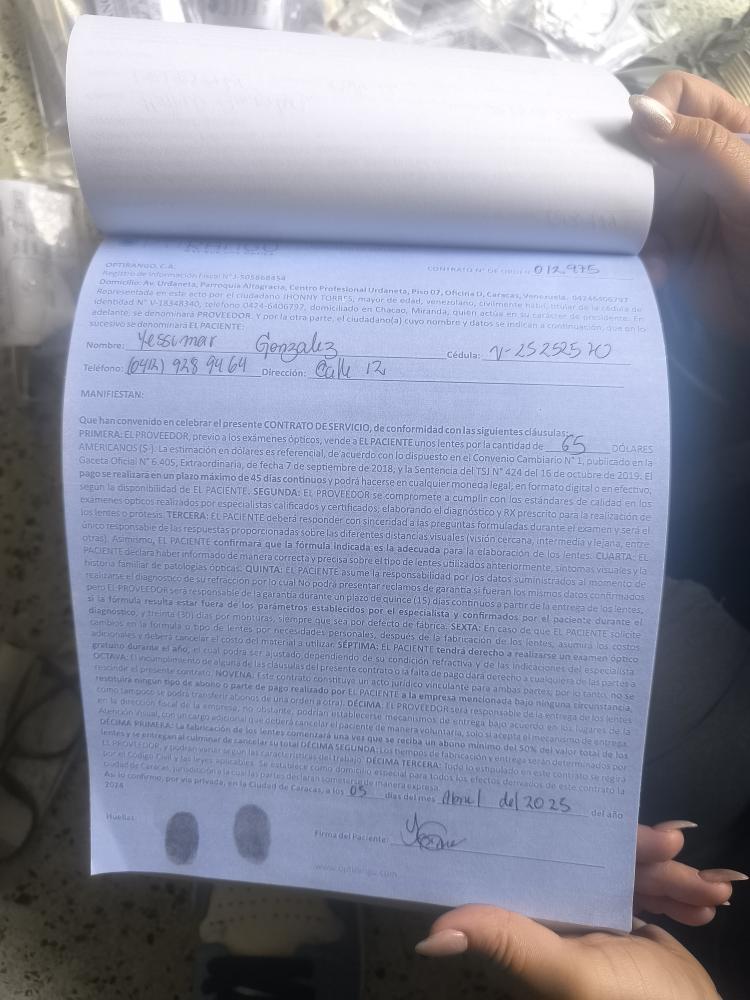 OPTIRANGO, C.A.
CONTRATO N° DE ORDEN 012975
Registro de Información Fiscal N° J-505868454
Domicilio: Av. Urdaneta, Parroquia Altagracia, Centro Profesional Urdaneta, Piso 07, Oficina D, Caracas, Venezuela. 04246406797
Representada en este acto por el ciudadano JHONNY TORRES, mayor de edad, venezolano, civilmente hábil, titular de la cédula de
identidad N° V-18348340, teléfono 0424-6406797, domiciliado en Chacao, Miranda, quien actúa en su carácter de presidente. En
adelante, se denominará PROVEEDOR. Y por la otra parte, el ciudadano(a) cuyo nombre y datos se indican a continuación, que en lo
sucesivo se denominará EL PACIENTE:
Nombre: Yessimar Gonzalez Cédula: V-25252570
Teléfono: (0412) 928 9464 Dirección: Calle 12
MANIFIESTAN:
Que han convenido en celebrar el presente CONTRATO DE SERVICIO, de conformidad con las siguientes cláusulas:
PRIMERA: EL PROVEEDOR, previo a los exámenes ópticos, vende a EL PACIENTE unos lentes por la cantidad de 65 DÓLARES
AMERICANOS ($-). La estimación en dólares es referencial, de acuerdo con lo dispuesto en el Convenio Cambiario N° 1, publicado en la
Gaceta Oficial N° 6.405, Extraordinaria, de fecha 7 de septiembre de 2018; y la Sentencia del TSJ N° 424 del 16 de octubre de 2019. El
pago se realizará en un plazo máximo de 45 días continuos y podrá hacerse en cualquier moneda legal, en formato digital o en efectivo,
según la disponibilidad de EL PACIENTE. SEGUNDA: EL PROVEEDOR se compromete a cumplir con los estándares de calidad en los
exámenes ópticos realizados por especialistas calificados y certificados; elaborando el diagnóstico y RX prescrito para la realización de
los lentes o prótesis. TERCERA: EL PACIENTE deberá responder con sinceridad a las preguntas formuladas durante el examen y será el
único responsable de las respuestas proporcionadas sobre las diferentes distancias visuales (visión cercana, intermedia y lejana, entre
otras). Asimismo, EL PACIENTE confirmará que la fórmula indicada es la adecuada para la elaboración de los lentes. CUARTA: EL
PACIENTE declara haber informado de manera correcta y precisa sobre el tipo de lentes utilizados anteriormente, síntomas visuales y la
historia familiar de patologías ópticas. QUINTA: EL PACIENTE asume la responsabilidad por los datos suministrados al momento de
realizarse el diagnostico de su refracción por lo cual No podrá presentar reclamos de garantía si fueran los mismos datos confirmados
pero EL PROVEEDOR será responsable de la garantía durante un plazo de quince (15) días continuos a partir de la entrega de los lentes,
si la fórmula resulta estar fuera de los parámetros establecidos por el especialista y confirmados por el paciente durante el
diagnóstico, y treinta (30) días por monturas, siempre que sea por defecto de fábrica. SEXTA: En caso de que EL PACIENTE solicite
cambios en la fórmula o tipo de lentes por necesidades personales, después de la fabricación de los lentes, asumirá los costos
adicionales y deberá cancelar el costo del material a utilizar. SÉPTIMA: EL PACIENTE tendrá derecho a realizarse un examen óptico
gratuito durante el año, el cual podrá ser ajustado dependiendo de su condición refractiva y de las indicaciones del especialista.
OCTAVA: El incumplimiento de alguna de las cláusulas del presente contrato o la falta de pago dará derecho a cualquiera de las partes a
rescindir el presente contrato. NOVENA: Este contrato constituye un acto jurídico vinculante para ambas partes; por lo tanto, no se
restituirá ningún tipo de abono o parte de pago realizado por EL PACIENTE a la empresa mencionada bajo ninguna circunstancia,
como tampoco se podrá transferir abonos de una orden a otra). DÉCIMA: EL PROVEEDOR será responsable de la entrega de los lentes
en la dirección fiscal de la empresa, no obstante, podrían establecerse mecanismos de entrega bajo acuerdo en los lugares de la
Atención Visual, con un cargo adicional que deberá cancelar el paciente de manera voluntaria, solo si acepta el mecanismo de entrega.
DÉCIMA PRIMERA: La fabricación de los lentes comenzará una vez que se reciba un abono mínimo del 50% del valor total de los
lentes y se entregan al culminar de cancelar su total DÉCIMA SEGUNDA: Los tiempos de fabricación y entrega serán determinados por
EL PROVEEDOR, y podrían variar según las características del trabajo. DÉCIMA TERCERA: Todo lo estipulado en este contrato se regirá
por el Código Civil y las leyes aplicables. Se establece como domicilio especial para todos los efectos derivados de este contrato la
Ciudad de Caracas, jurisdicción a la cual las partes declaran someterse de manera expresa.
Así lo confirmo, por vía privada, en la Ciudad de Caracas, a los 05 días del mes Abril del 2025 del año
2024
Huellas:
Firma del Paciente:
www.optirango.com